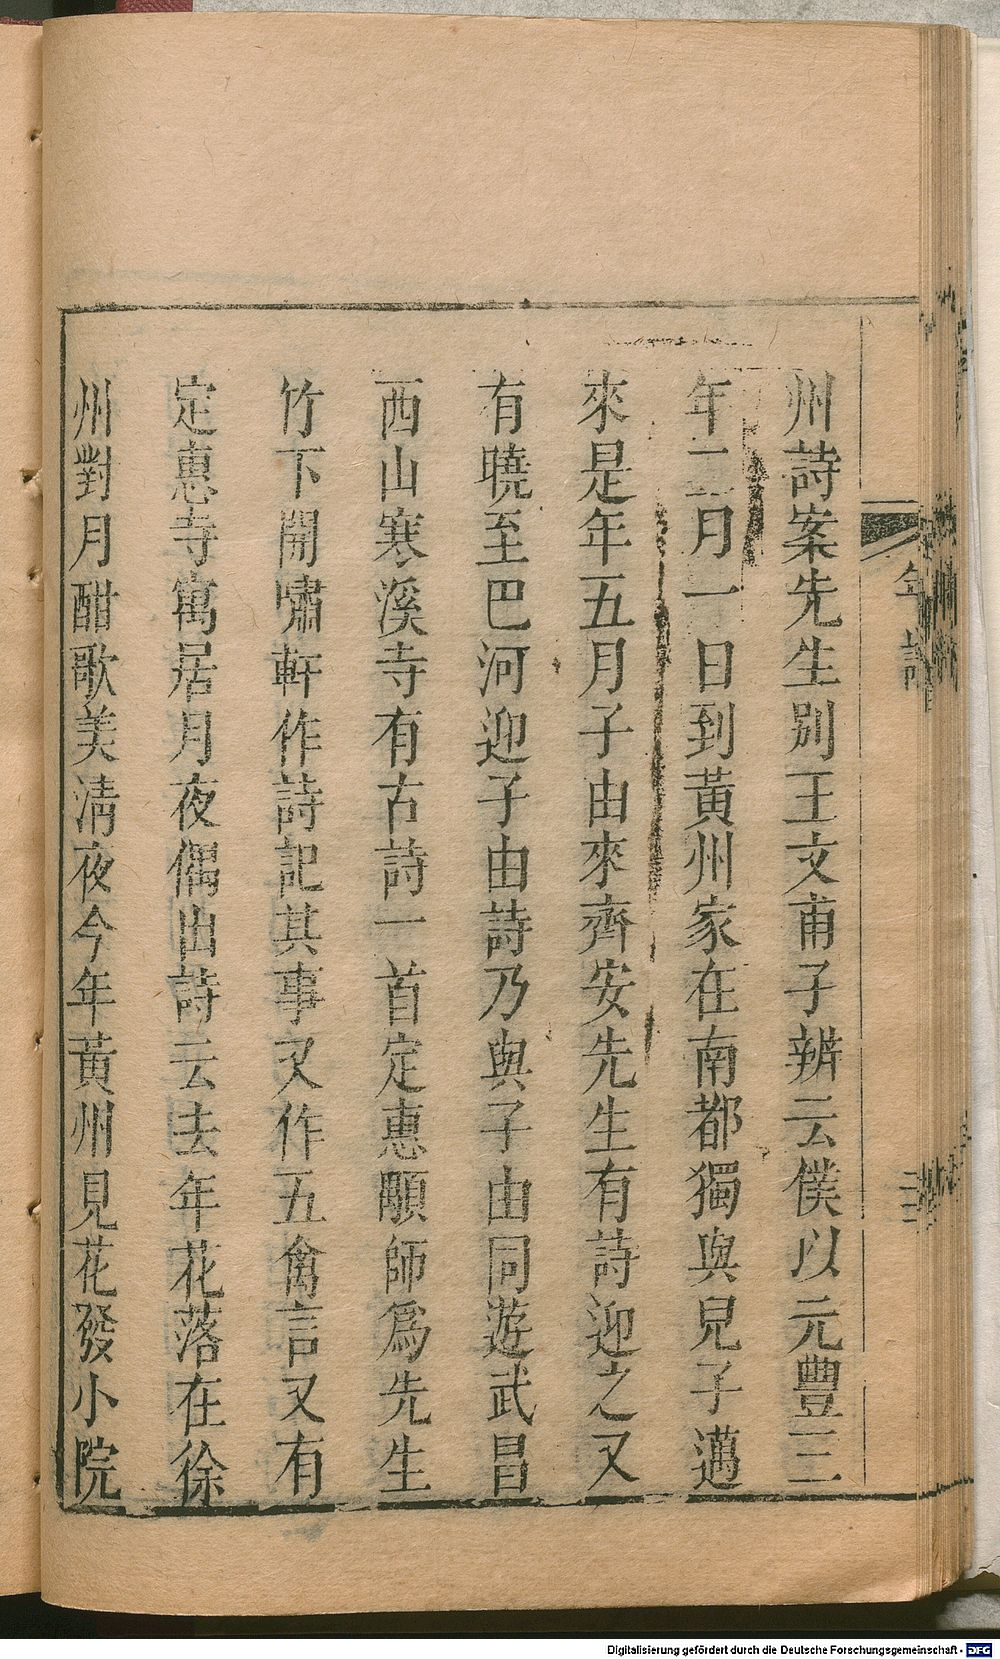 州詩案先生別王文甫子辨云僕以元豐三
年二月一日到黃州家在南都獨與兒子邁
來是年五月子由來齊安先生有詩迎之又
有曉至巴河迎子由詩乃與子由同遊武昌
西山寒溪寺有古詩一首定惠顒師爲先生
竹下開嘯軒作詩記其事又作五禽言又有
定惠寺寓居月夜偶出詩云去年花落在徐
州對月酣歌美淸夜今年黃州見花發小院
年譜
Digitalisierung gefördert durch die Deutsche Forschungsgemeinschaft - DFG